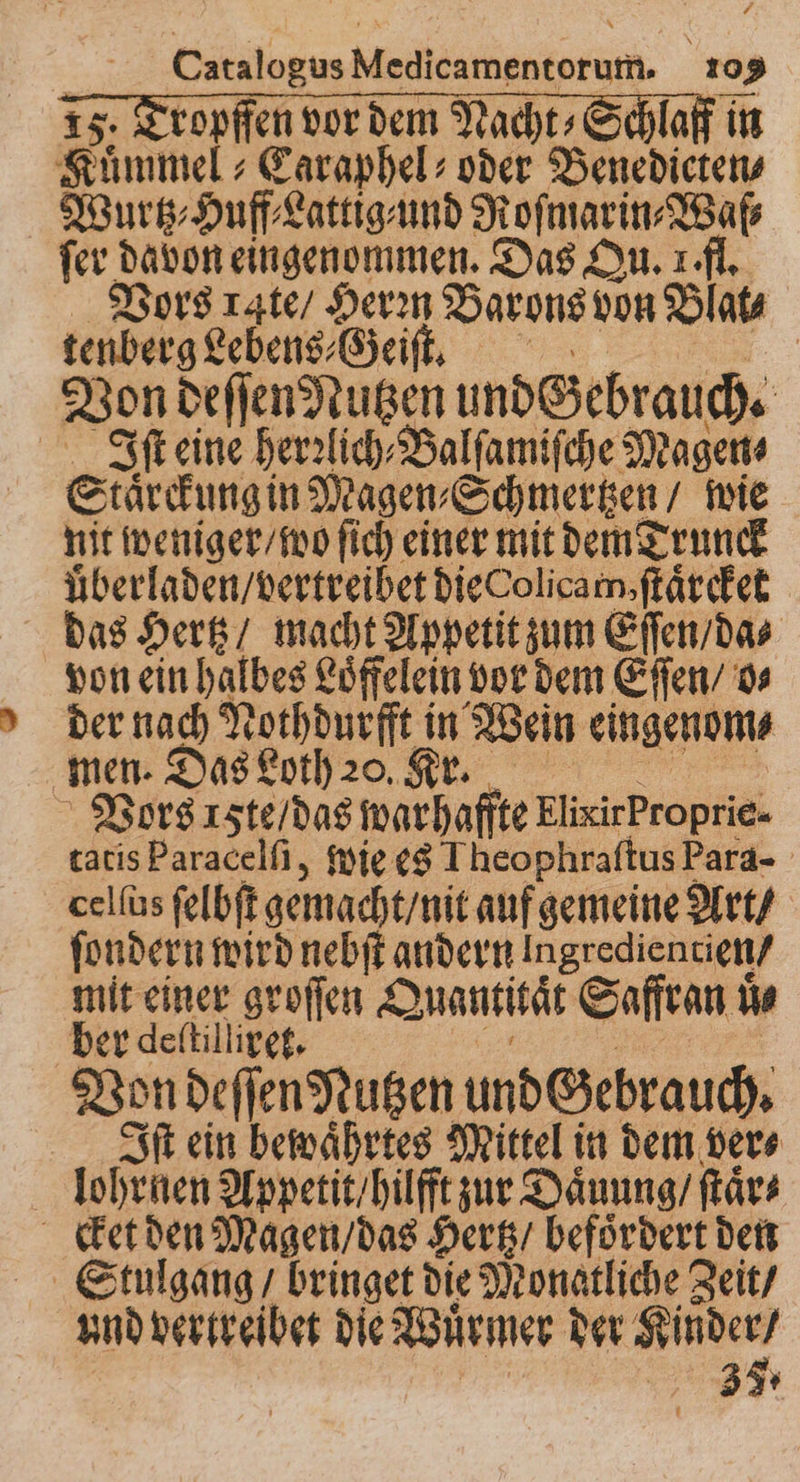 Catalogus Medicamentorum. 109
15. Tropffen vor dem Nacht⸗Schlaff in
Kuͤmmel⸗Caraphel⸗oder Benedicten⸗
Wurtz⸗Huff⸗Lattig⸗und Roſmarin⸗Waſ⸗
ſer davon eingenommen. Das Qu. 1.fl.
Vors 14te/ Herꝛn Barons von Blat⸗
tenberg Lebens⸗Geiſt.
Von deſſen Nutzen und Gebrauch.
Iſt eine herꝛlich⸗Balſamiſche Magen⸗
Staͤrckung in Magen⸗Schmertzen / wie
nit weniger/wo ſich einer mit dem Trunck
uͤberladen/vertreibet die Colicam, ſtaͤrcket
das Hertz / macht Appetit zum Eſſen/da⸗
von ein halbes Loͤffelein vor dem Eſſen/ o⸗
der nach Nothdurfft in Wein eingenom⸗
men. Das Loth 20. Kr.
Vors 15te/das warhaffte Elixir Proprie-
tatis Paracelſi, wie es Theophraſtus Para-
celſus ſelbſt gemacht/nit auf gemeine Art/
ſondern wird nebſt andern Ingredientien/
mit einer groſſen Quantitaͤt Saffran uͤ⸗
ber deſtilliret.
Von deſſen Nutzen und Gebrauch.
Iſt ein bewaͤhrtes Mittel in dem ver⸗
lohrnen Appetit/hilfft zur Daͤuung/ ſtaͤr⸗
cket den Magen/das Hertz/ befoͤrdert den
Stulgang / bringet die Monatliche Zeit/
und vertreibet die Wuͤrmer der Kinder/
35.